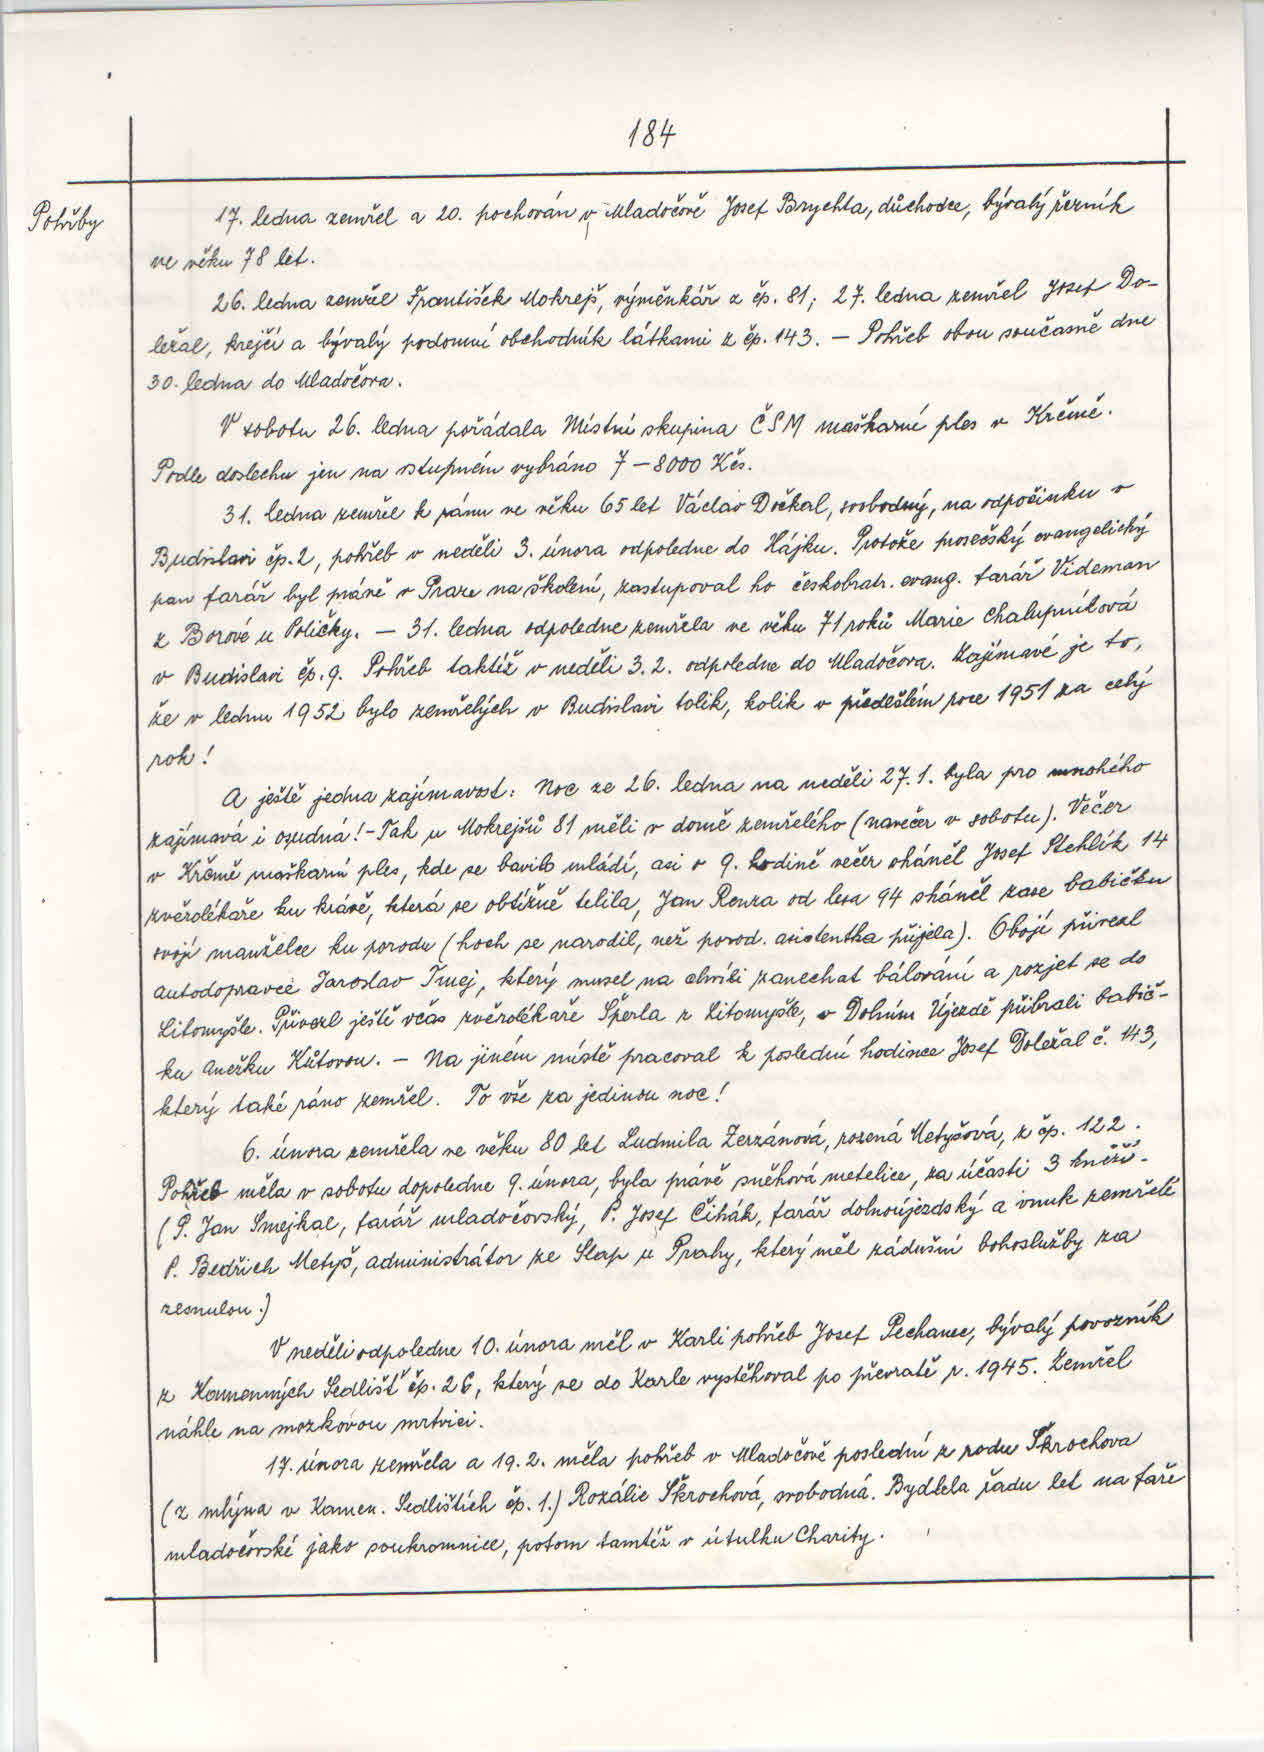 184
Pohřby
17. ledna zemřel a 20. pochován v Mladočově Josef Brychta, důchodce, bývalý řezník
ve věku 78 let.
26. ledna zemřel František Mokrejš, výměnkář z čp. 81; 27. ledna zemřel Josef Do-
ležal, krejčí a bývalý podomní obchodník látkami z čp. 143. – Pohřeb obou současně dne
30. ledna do Mladočova.
V sobotu 26. ledna pořádala Místní skupina ČSM maškarní ples v Krčmě.
Podle doslechu jen na vstupném vybráno 7 – 8000 Kčs.
31. ledna zemřel k ránu ve věku 65 let Václav Dočkal, svobodný, na odpočinku v
Budislavi čp. 2, pohřeb v neděli 3. února odpoledne do Hájku. Protože prosečský evangelický
pan farář byl právě v Praze na školení, zastupoval ho českobratr. evang. farář Videman
z Borové u Poličky. – 31. ledna odpoledne zemřela ve věku 71 roků Marie Chalupníková
v Budislavi čp. 9. Pohřeb taktéž v neděli 3.2. odpoledne do Mladočova. Zajímavé je to,
že v lednu 1952 bylo zemřelých v Budislavi tolik, kolik v předešlém roce 1951 za celý
rok!
A ještě jedna zajímavost: Noc ze 26. ledna na neděli 27.1. byla pro mnohého
zajímavá i osudná! – Tak u Mokrejšů 81 měli v domě zemřelého (navečer v sobotu). Večer
v Krčmě maškarní ples, kde se bavilo mládí, asi v 9. hodině večer sháněl Josef Stehlík 14
zvěrolékaře ku krávě, která se obtížně telila, Jan Renza od lesa 94 sháněl zase babičku
svojí manželce ku porodu (hoch se narodil, než porod. asistentka přijela). Obojí přivezl
autodopravce Jaroslav Tmej, který musel na chvíli zanechat bálování a rozjet se do
Litomyšle. Přivezl ještě včas zvěrolékaře Šperla z Litomyšle, v Dolním Újezdě přibrali babič-
ku Anežku Kůtovou. – Na jiném místě pracoval k poslední hodince Josef Doležal č. 143,
který také ráno zemřel. To vše za jedinou noc!
6. února zemřela ve věku 80 let Ludmila Zerzánová, rozená Metyšová, z čp. 122.
Pohřeb měla v sobotu dopoledne 9. února, byla právě sněhová metelice, za účasti 3 kněží.
(P. Jan Smejkal, farář mladočovský, P. Josef Čihák, farář dolnoújezdský a vnuk zemřelé
P. Bedřich Metyš, administrátor ze Slap u Prahy, který měl zádušní bohoslužby za
zesnulou.)
V neděli odpoledne 10. února měl v Karli pohřeb Josef Pechanec, bývalý povozník
z Kamenných Sedlišť čp. 26, který se do Karle vystěhoval po převratě r. 1945. Zemřel
náhle na mozkovou mrtvici.
17. února zemřela a 19.2. měla pohřeb v Mladočově poslední z rodu Škrochova
(z mlýna v Kamen. Sedlištích čp. 1.) Rozálie Škrochová, svobodná. Bydlela řadu let na faře
mladočovské jako soukromnice, potom tamtéž v útulku Charity.